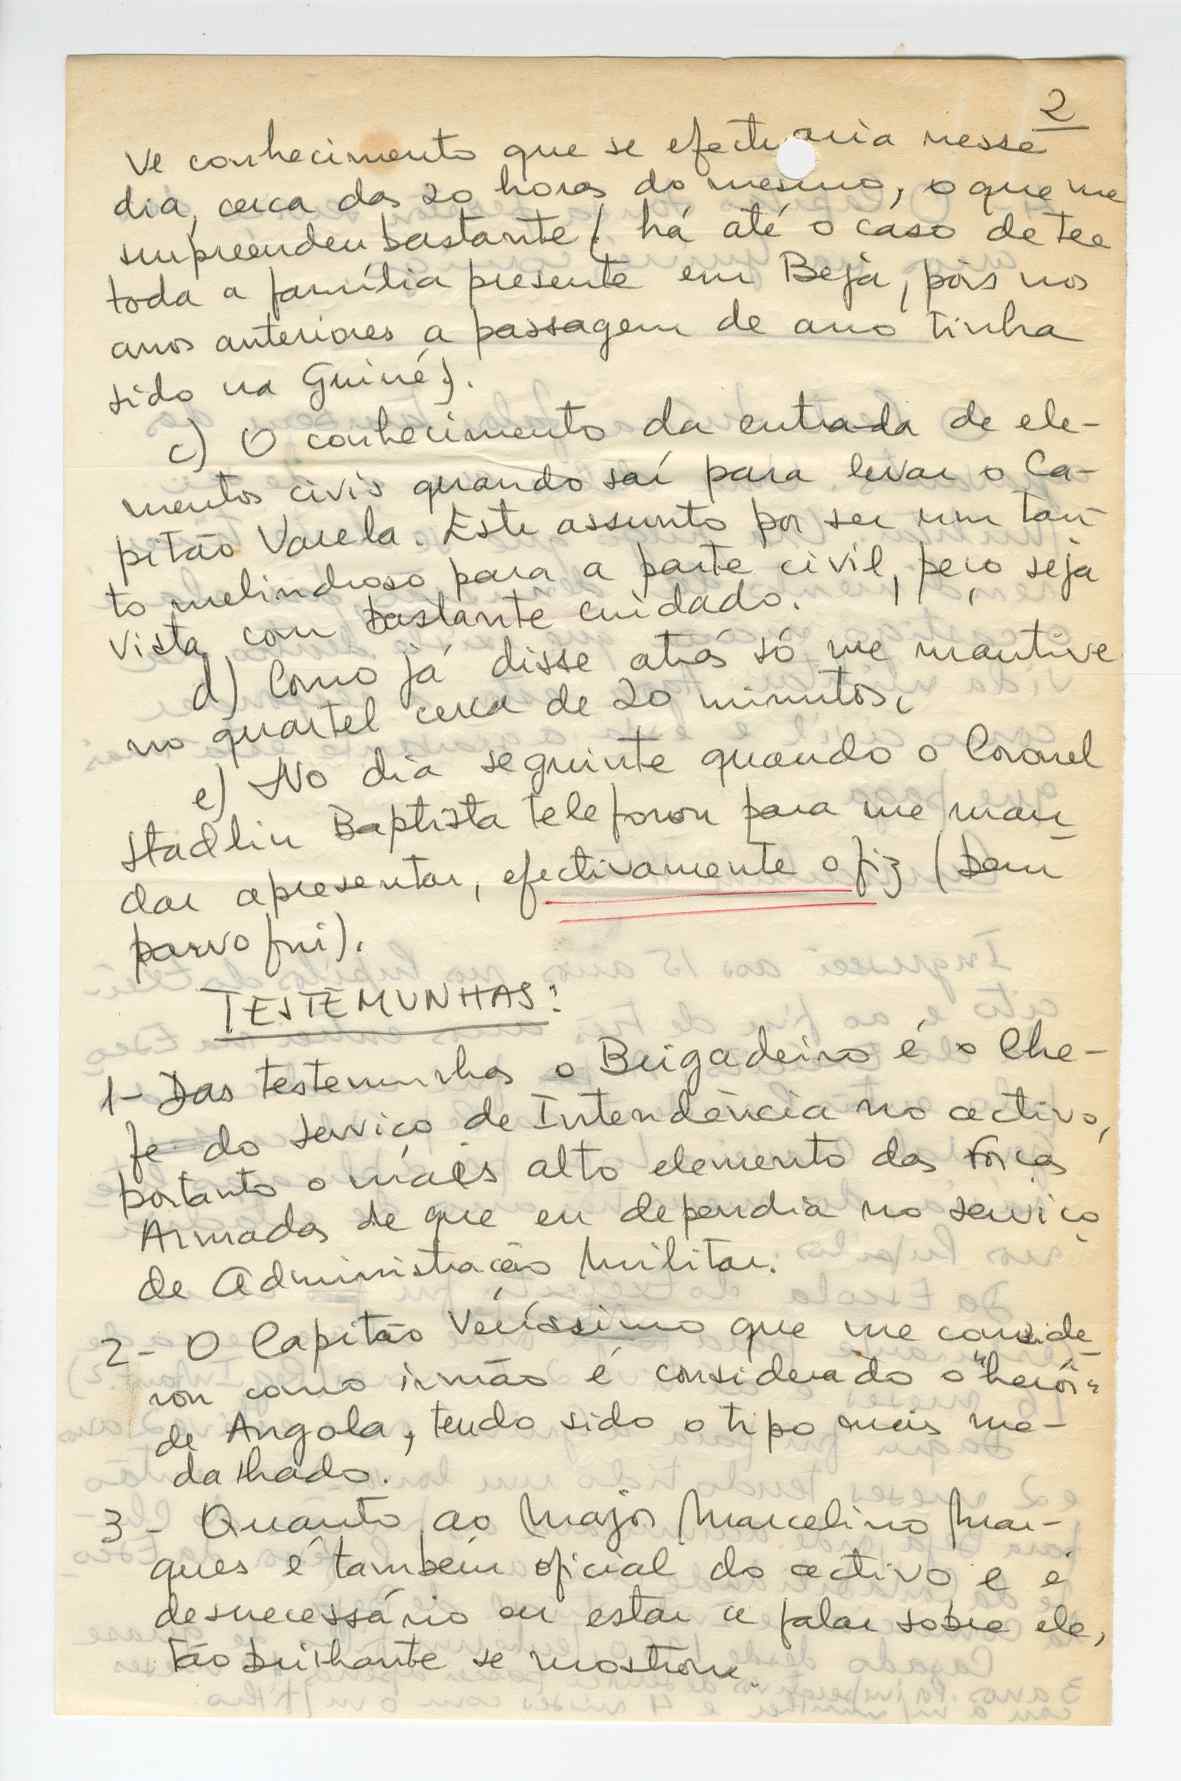 2
ve conhecimento que se efectuaria nesse
dia, cerca das 20 horas do mesmo, o que me
surpreendeu bastante (há até o caso de ter
toda a família presente em Beja, pois nos
anos anteriores a passagem de ano tinha
sido na Guiné).
c) O conhecimento da entrada de ele-
mentos civis quando saí para levar o Ca-
pitão Varela. Este assunto por ser um tan-
to melindroso para a parte civil, peço seja
vista com bastante cuidado.
d) Como já disse atrás só me mantive
no quartel cerca de 20 minutos.
e) No dia seguinte quando o Coronel
Stadlin Baptista telefonou para me man-
dar apresentar, efectivamente o fiz (bem
parvo fui).
TESTEMUNHAS:
1- Das testemunhas o Brigadeiro é o Che-
fe do serviço de Intendência no activo,
portanto o mais alto elemento das Forças
Armadas de que eu dependia no serviço
de Administração Militar.
2- O Capitão Veríssimo que me conside-
rou como irmão é considerado o "herói"
de Angola, tendo sido o tipo mais me-
dalhado.
3- Quanto ao Major Marcelino Mar-
ques é também oficial do activo e é
desnecessário eu estar a falar sobre ele,
tão brilhante se mostrou.